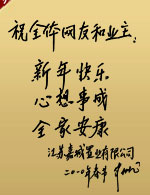 祝全体网友和业主：
新年快乐
心想事成
全家安康
江苏嘉城置业有限公司
二〇一〇年春节